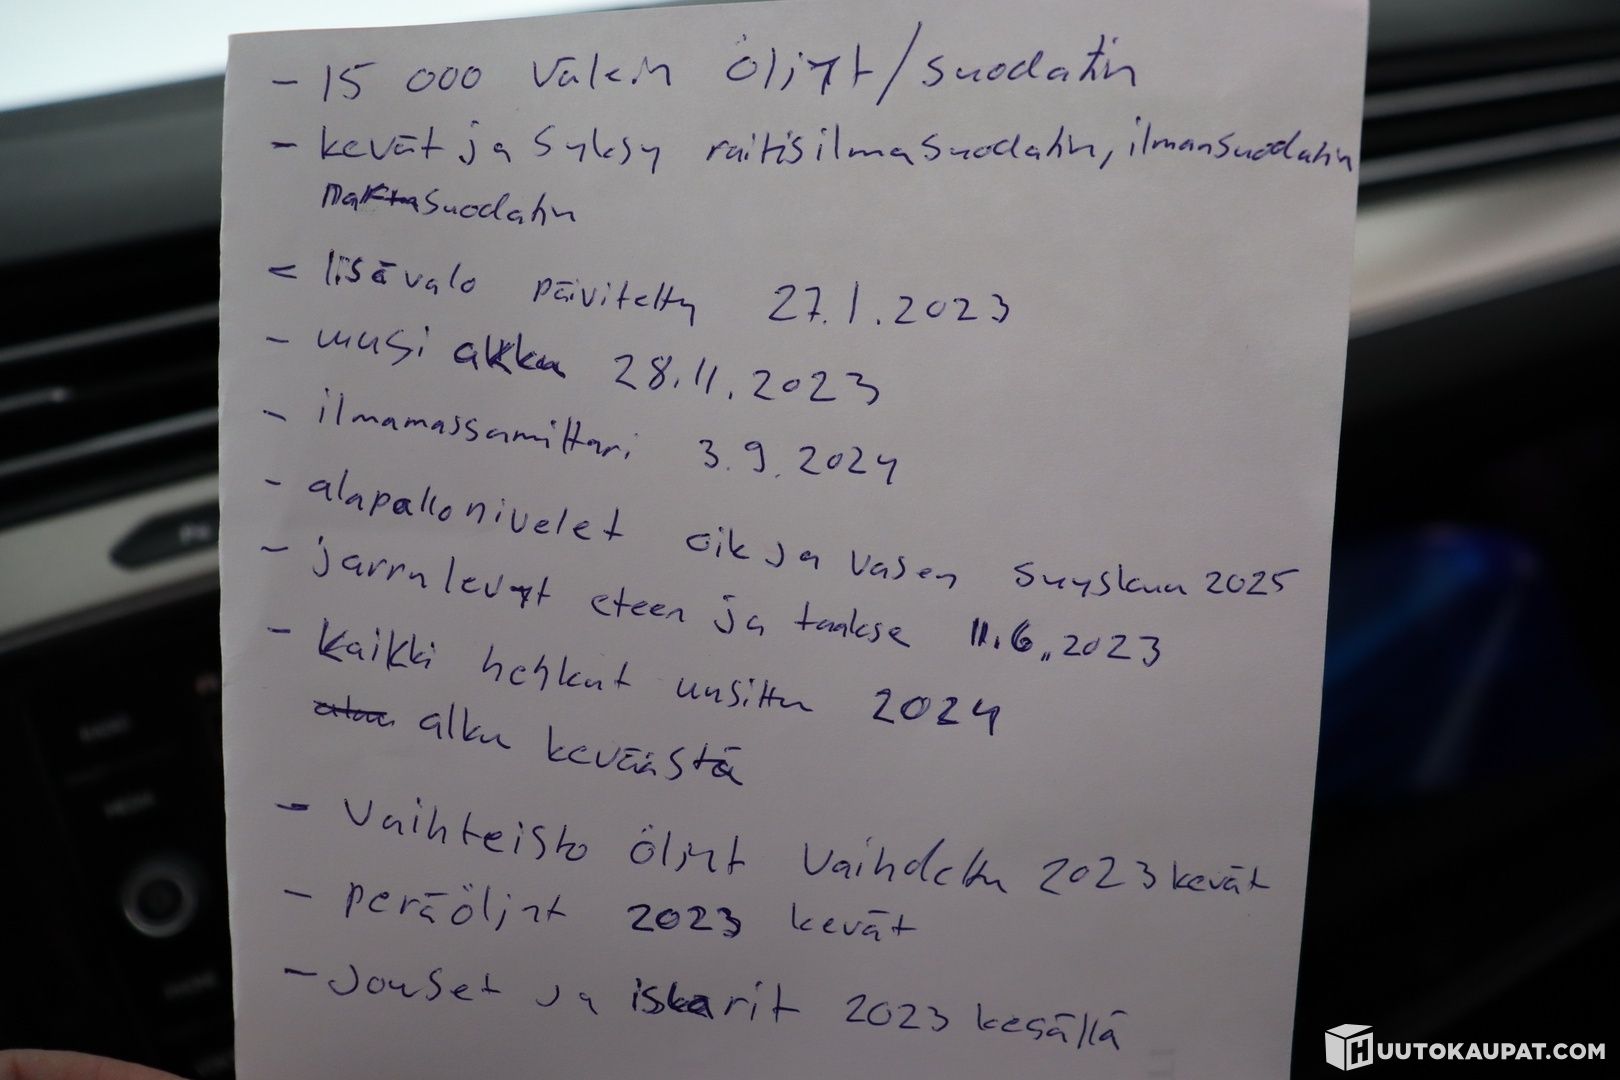 - 15 000 välein öljyt/suodatin
- kevät ja syksy raitisilmasuodatin, ilmansuodatin
suodatin
- lisävalo päivitetty 27.1.2023
- uusi akku 28.11.2023
- ilmamassamittari 3.9.2024
- alapallonivelet oik ja vasen syyskuu 2025
- jarrulevyt eteen ja taakse 11.6.2023
- kaikki hehkut uusittu 2024
alku keväästä
- vaihteisto öljyt vaihdettu 2023 kevät
- peräöljyt 2023 kevät
- jouset ja iskarit 2023 kesällä
HUUTOKAUPAT.COM